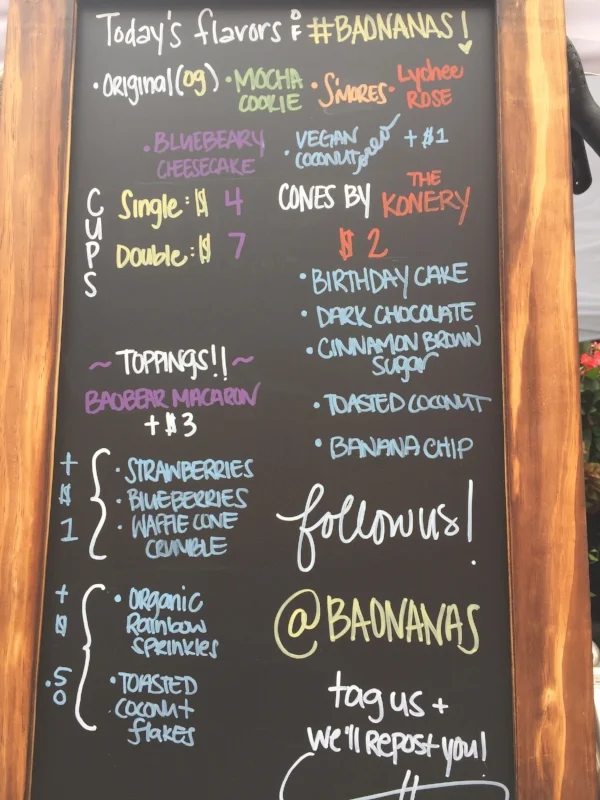 Today's flavors OF #BAONANAS!
• ORIGINAL (OG) • MOCHA COOKIE • S'MORES • Lychee ROSE
• BLUEBEARY CHEESECAKE • VEGAN COCONUT + $1
CUPS
Single: $ 4
Double: $ 7
CONES BY THE KONERY
$2
• BIRTHDAY CAKE
• DARK CHOCOLATE
• CINNAMON BROWN
sugar
• TOASTED COCONUT
• BANANA CHIP
~ TOPPINGS!! ~
BAOBEAR MACARON
+ $3
+ $ 1
• STRAWBERRIES
• BLUEBERRIES
• WAFFLE CONE
CRUMBLE
+ $ .50
• ORGANIC
Rainbow
sprinkles
• TOASTED
coconut
flakes
follow us!
@BAONANAS
tag us +
we'll REPOST you!